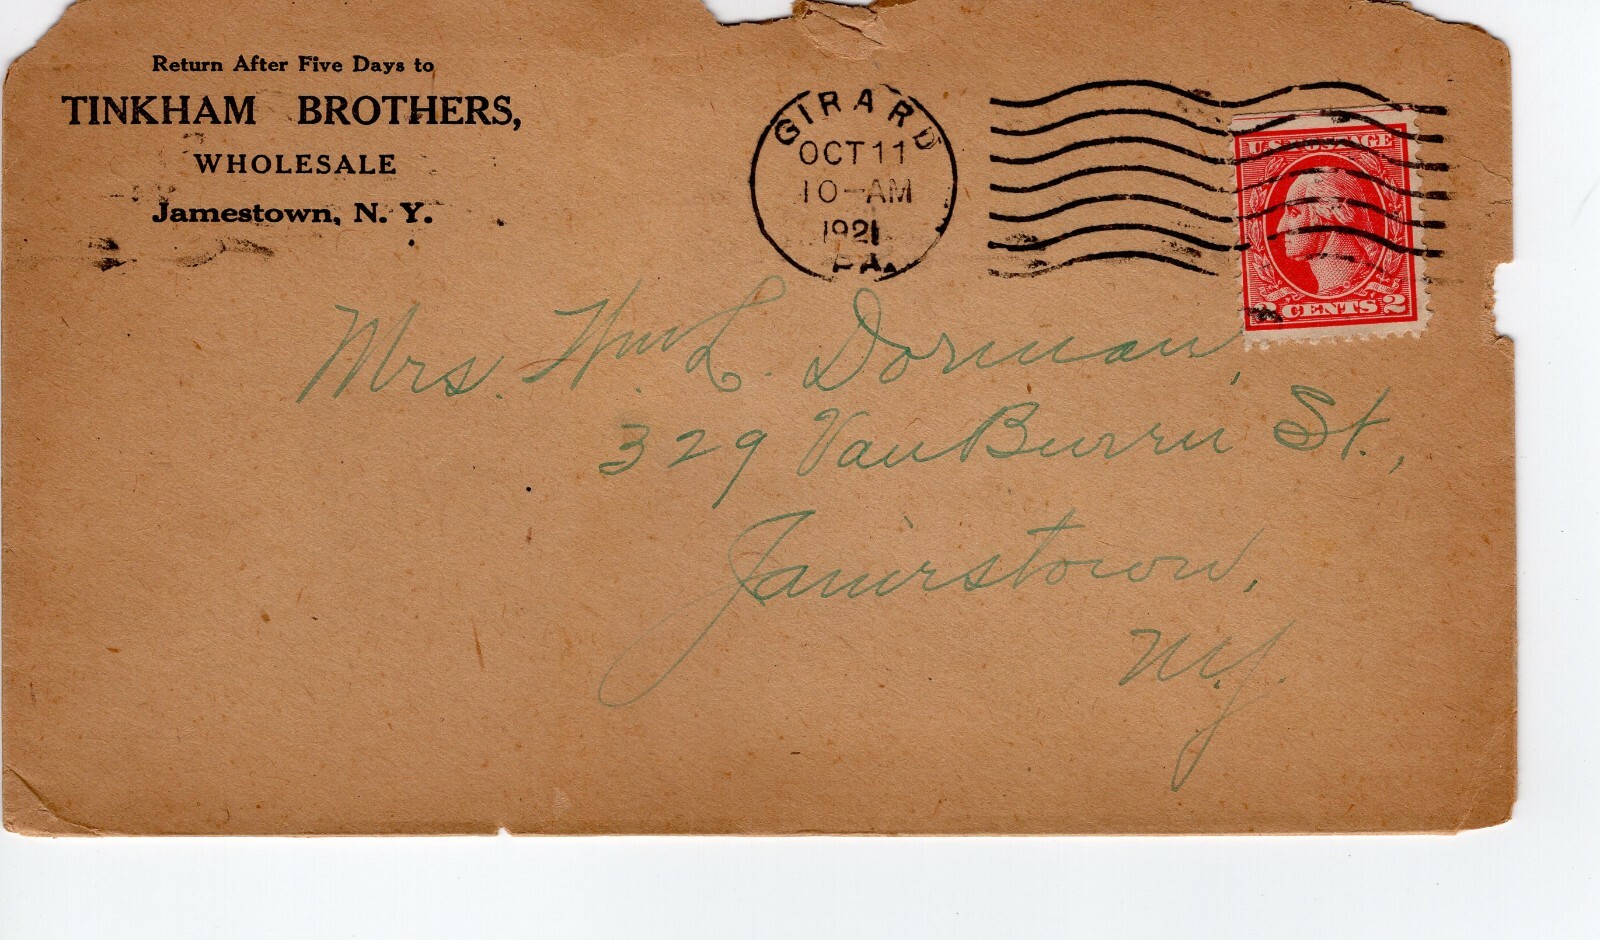 Return After Five Days to
TINKHAM BROTHERS,
WHOLESALE
Jamestown, N. Y.
GIRARD
OCT 11
10-AM
1921
PA.
U.S. POSTAGE
2 CENTS 2
Mrs. Wm. L. Dorman,
329 Van Buren St.,
Jamestown,
N.Y.